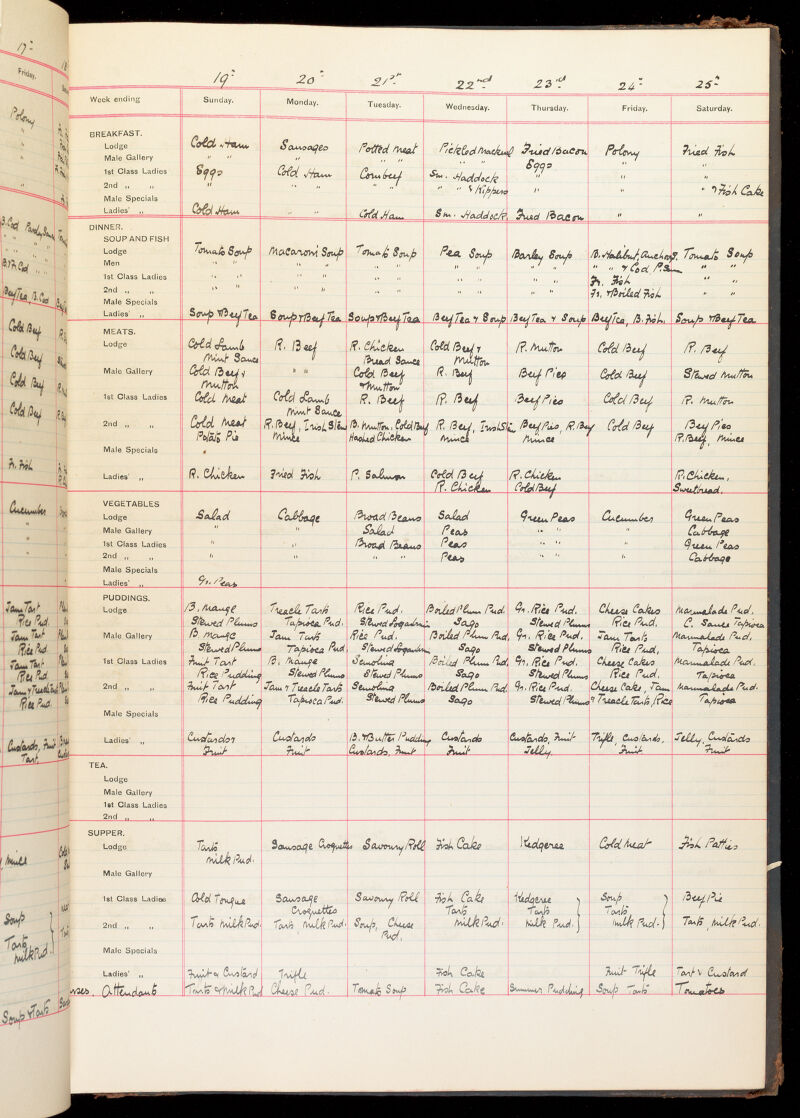 17
Friday.
Polony
19th 20th 21st 22nd 23rd 24th 25th
Week ending Sunday. Monday. Tuesday. Wednesday. Thursday. Friday. Saturday.
BREAKFAST.
Lodge Cold Ham Sausages Potted meat Pickled Mackerel Fried Bacon Polony Fried Fish
Male Gallery " " " " " " Eggs "
1st Class Ladies Eggs Cold Ham Corn beef Sm. Haddock " "
2nd " " " " " " " " & Kippers " " " & Fish Cake
Male Specials
Ladies' " Cold Ham " " Cold Ham Sm. Haddock Fried Bacon " "
DINNER.
SOUP AND FISH
Lodge Tomato Soup Macaroni Soup Tomato Soup Pea Soup Barley Soup B. Halibut, Tomato Soup
Men " " " " " " " " " " " " & Cod P. " "
1st Class Ladies " " " " " " " " " " Fr. Fish " "
2nd " " " " " " " " " " Fr. & Boiled Fish " "
Male Specials
Ladies' " Soup & Beef Tea Soup & Beef Tea Soup & Beef Tea Beef Tea & Soup Beef Tea & Soup Beef Tea, B. Fish. Soup & Beef Tea
MEATS.
Lodge Cold Lamb R. Beef R. Chicken Cold Beef & R. Mutton Cold Beef R. Beef
Mint Sauce Bread Sauce Mutton
Male Gallery Cold Beef & " " Cold Beef R. Beef Beef Pies Cold Beef Stewed Mutton
Mutton & Mutton
1st Class Ladies Cold Meat Cold Lamb R. Beef R. Beef Beef Pies Cold Beef R. Mutton
Mint Sauce
2nd " " Cold Meat R. Beef, Irish Stew B. Mutton, Cold Beef R. Beef, Irish Stew Beef Pies, R. Beef Cold Beef Beef Pies
Potato Pie Mince Hashed Chicken Mince Mince R. Beef, Mince
Male Specials
Ladies' " R. Chicken Fried Fish P. Salmon Cold Beef R. Chicken R. Chicken,
R. Chicken Cold Beef Sweetbread.
VEGETABLES
Lodge Salad Cabbage Broad Beans Salad Green Peas Cucumber Green Peas
Male Gallery " " Salad Peas " " " Cabbage
1st Class Ladies " " Broad Beans Peas " " " Green Peas
2nd " " " " " Peas " " " Cabbage
Male Specials
Ladies' " Gr. Peas
PUDDINGS.
Lodge B. Mange Treacle Tarts Rice Pud. Boiled Plum Pud. Gr. Rice Pud. Cheese Cakes Marmalade Pud.
Stewed Plums Tapioca Pud. Stewed Sago Stewed Plums Rice Pud. C. Sauce Tapioca
Male Gallery B. Mange Jam Tarts Rice Pud. Boiled Plum Pud. Gr. Rice Pud. Jam Tarts Marmalade Pud.
Stewed Plums Tapioca Pud. Stewed Sago Stewed Plums Rice Pud. Tapioca
1st Class Ladies Fruit Tart B. Mange Semolina Boiled Plum Pud. Gr. Rice Pud. Cheese Cakes Marmalade Pud.
Rice Pudding Stewed Plums Stewed Plums Sago Stewed Plums Rice Pud. Tapioca
2nd " " Fruit Tart Jam & Treacle Tarts Semolina Boiled Plum Pud. Gr. Rice Pud. Cheese Cake, Jam Marmalade Pud.
Rice Pudding Tapioca Pud. Stewed Plums Sago Stewed Plums & Treacle Tarts, Rice Tapioca
Male Specials
Ladies' " Custards & Custards B. & Butter Pudding Custards Custards, Fruit Trifle, Custards, Jelly, Custards
Fruit Fruit Custards, Fruit Fruit Jelly Fruit Fruit
TEA.
Lodge
Male Gallery
1st Class Ladies
2nd " "
SUPPER.
Lodge Tarts Sausage Croquettes Savoury Roll Fish Cake Kedgeree Cold Meat Fish Patties
Milk Pud.
Male Gallery
1st Class Ladies Cold Tongue Sausage Savoury Roll Fish Cake Kedgeree Soup Beef Pie
Croquettes Tarts Tarts Tarts
2nd " " Tarts Milk Pud. Tarts Milk Pud. Soup, Cheese Milk Pud. Milk Pud. Milk Pud. Tarts, Milk Pud.
Pud.
Male Specials
Ladies' " Fruit & Custard Trifle Fish Cake Fruit Trifle Tart & Custard
Attendants Tarts & Milk Pud Cheese Pud. Tomato Soup Fish Cake Summer Pudding Soup Tarts Tomatoes